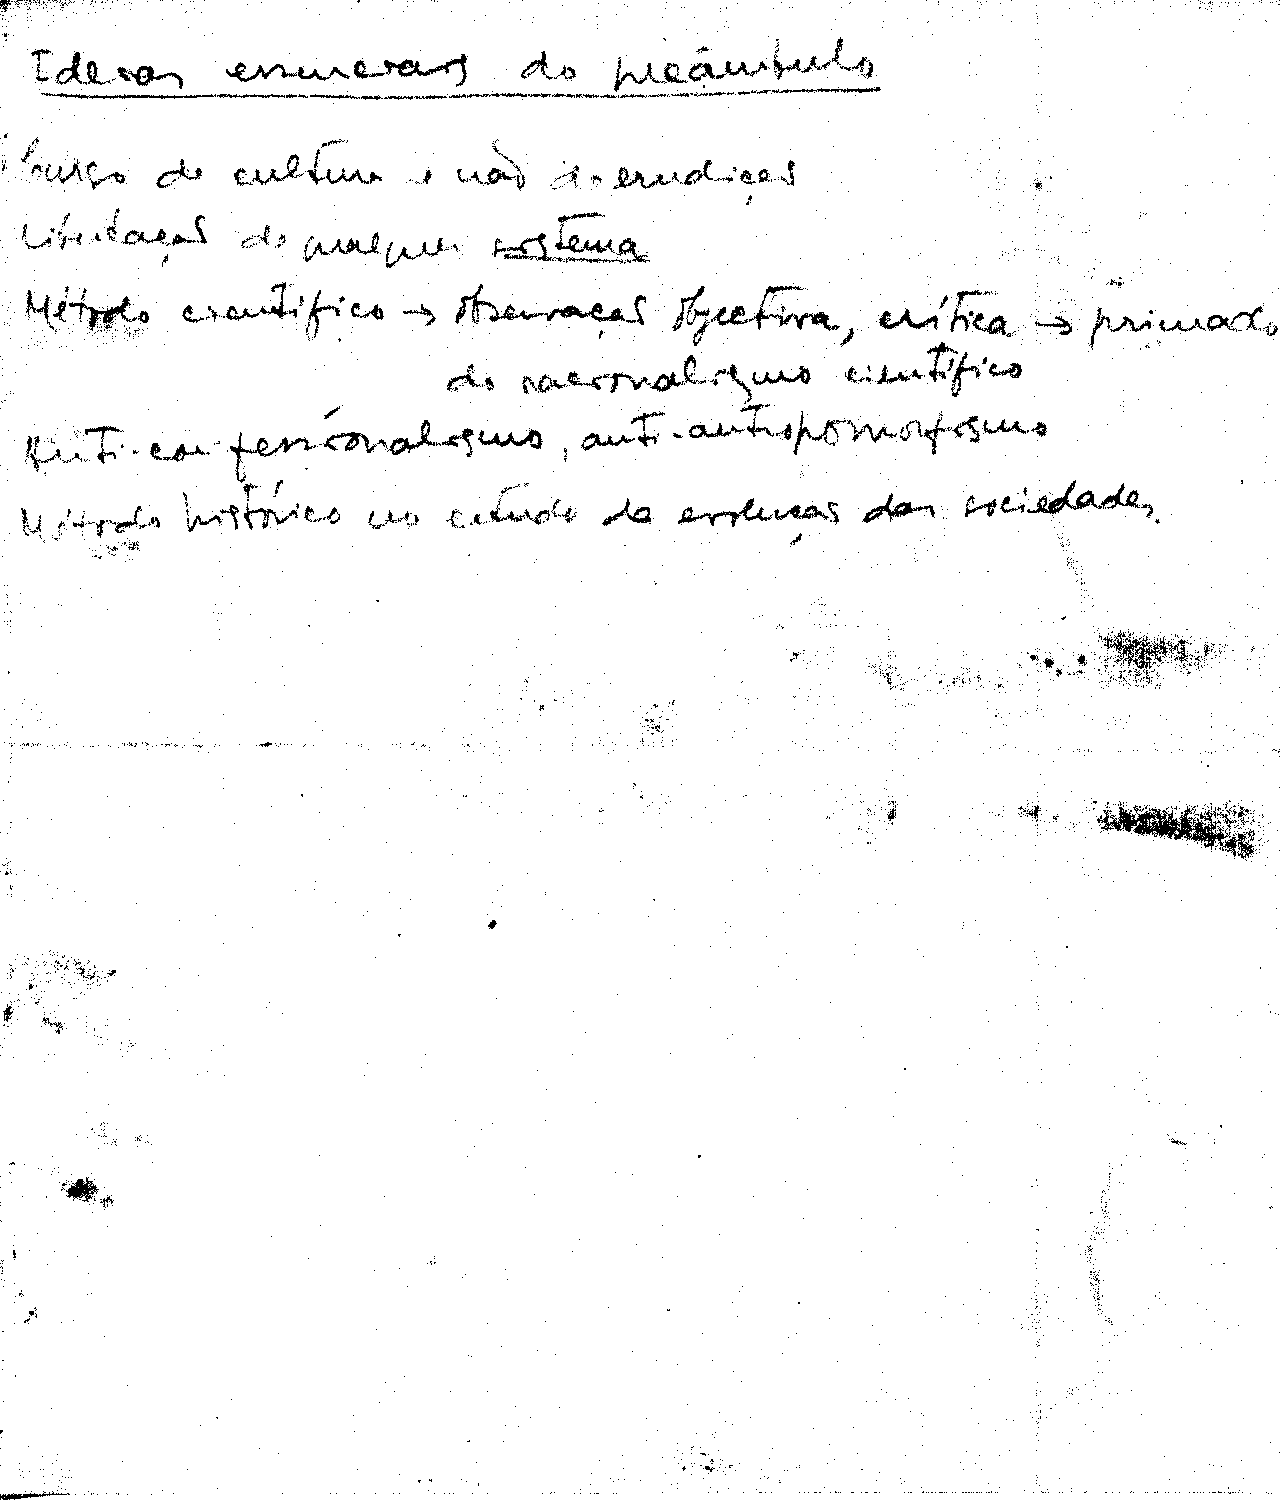 Ideias essenciais do preâmbulo
Curso de cultura e não de erudição
Libertação de qualquer sistema
Método científico → observação objectiva, crítica → primado
do racionalismo científico
Anti-confessionalismo, anti-antropomorfismo
Método histórico no estudo da evolução das sociedades.